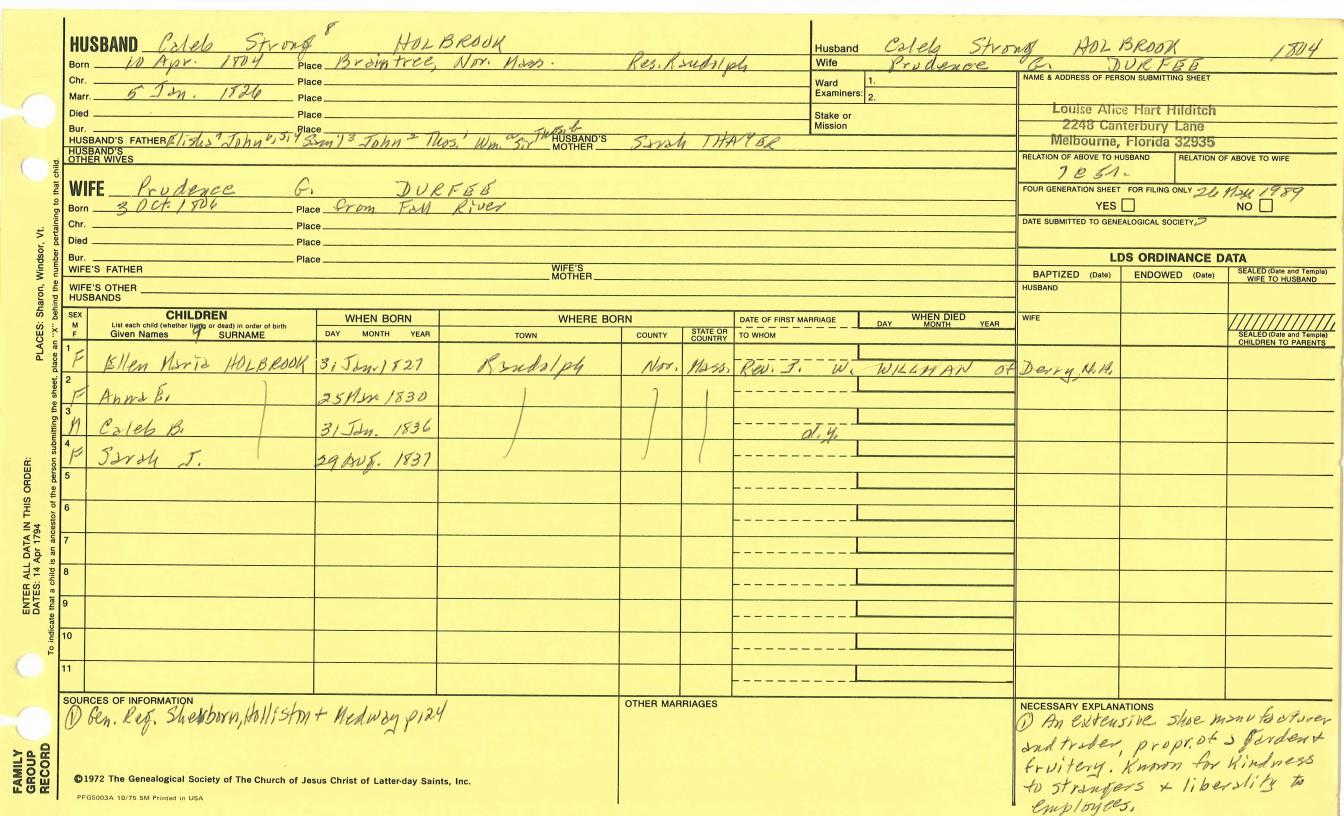 HUSBAND Caleb Strong 8 HOLBROOK
Born 10 Apr. 1804 Place Braintree, Nor. Mass. Res. Randolph
Chr. Place
Marr. 5 Jan. 1826 Place
Died Place
Bur. Place
HUSBAND'S FATHER Elisha 7 John 6, 5, 4 Sam'l 3 John 2 Thos. 1 Wm. HUSBAND'S MOTHER Sarah THAYER
HUSBAND'S OTHER WIVES
WIFE Prudence G. DURFEE
Born 3 Oct. 1806 Place from Fall River
Chr. Place
Died Place
Bur. Place
WIFE'S FATHER WIFE'S MOTHER
WIFE'S OTHER HUSBANDS
Husband Caleb Strong HOLBROOK 1804
Wife Prudence G. DURFEE
Ward Examiners: 1.
2.
Stake or Mission
NAME & ADDRESS OF PERSON SUBMITTING SHEET
Louise Alice Hart Hilditch
2248 Canterbury Lane
Melbourne, Florida 32935
RELATION OF ABOVE TO HUSBAND RELATION OF ABOVE TO WIFE
FOUR GENERATION SHEET FOR FILING ONLY 26 May 1989
YES NO
DATE SUBMITTED TO GENEALOGICAL SOCIETY
LDS ORDINANCE DATA
BAPTIZED (Date) ENDOWED (Date) SEALED (Date and Temple) WIFE TO HUSBAND
HUSBAND
WIFE
SEALED (Date and Temple) CHILDREN TO PARENTS
SEX M F
CHILDREN
List each child (whether living or dead) in order of birth
Given Names 9 SURNAME
WHEN BORN
DAY MONTH YEAR
WHERE BORN
TOWN COUNTY STATE OR COUNTRY
DATE OF FIRST MARRIAGE
TO WHOM
WHEN DIED
DAY MONTH YEAR
1 F Ellen Maria HOLBROOK 31 Jan. 1827 Randolph Nor. Mass. Rev. J. W. WILLMAN of Derry, N.H.
2 F Anna E. 25 Mar 1830
3 M Caleb B. 31 Jan. 1836 d.y.
4 F Sarah J. 29 Aug. 1837
5
6
7
8
9
10
11
SOURCES OF INFORMATION
① Gen. Reg. Sherborn, Holliston + Medway p. 124
OTHER MARRIAGES
NECESSARY EXPLANATIONS
① An extensive shoe manufacturer
and trader, propr. of a garden +
fruitery. Known for kindness
to strangers + liberality to
employees.
©1972 The Genealogical Society of The Church of Jesus Christ of Latter-day Saints, Inc.
PFGS003A 10/75 5M Printed in USA
FAMILY GROUP RECORD
ENTER ALL DATA IN THIS ORDER:
DATES: 14 Apr 1794
PLACES: Sharon, Windsor, Vt.
To indicate that a child is an ancestor of the person submitting the sheet, place an "X" behind the number pertaining to that child